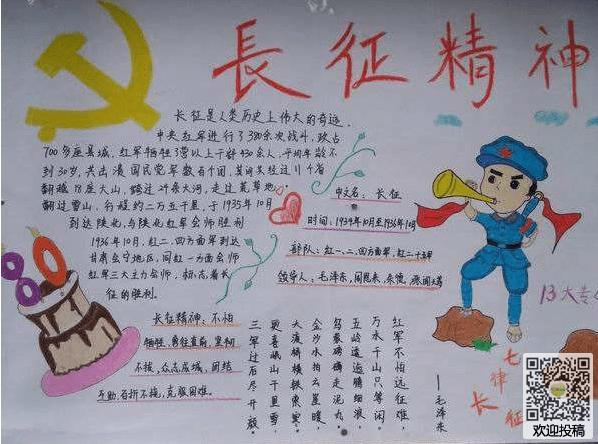 長征精神
长征是人类历史上伟大的奇迹，
中央红军进行了380余次战斗，攻占
700多座县城，红军牺牲了营以上干部430余人，平均年龄不
到30岁，共击溃国民党军数百个团，其间共经过11个省
翻越18座大山，跨过24条大河，走过荒草地
翻过雪山，行程约二万五千里，于1935年10月
到达陕北，与陕北红军会师胜利
1936年10月，红二、四方面军到达
甘肃会宁地区，同红一方面会师
红军三大主力会师，标志着长
征的胜利。
中文名：长征
时间：1934年10月至1936年10月
部队：红一、二、四方面军，红二十五军
领导人：毛泽东，周恩来，朱德，张闻天等
长征精神：不怕
牺牲，勇往直前，坚韧
不拔，众志成城，团结
互助，百折不挠，克服困难。
红军不怕远征难，
万水千山只等闲
五岭逶迤腾细浪，
乌蒙磅礴走泥丸，
金沙水拍云崖暖，
大渡桥横铁索寒，
更喜岷山千里雪，
三军过后尽开颜，
——毛泽东
七律
长征
13大专
80
欢迎投稿